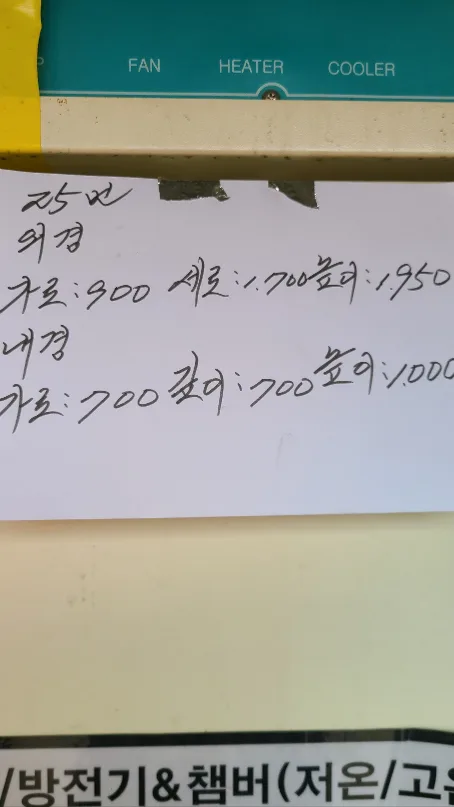 P FAN HEATER COOLER
25번
외경
가로:900 세로:1.700 높이:1.950
내경
가로:700 깊이:700 높이:1.000
/방전기&챔버(저온/고온